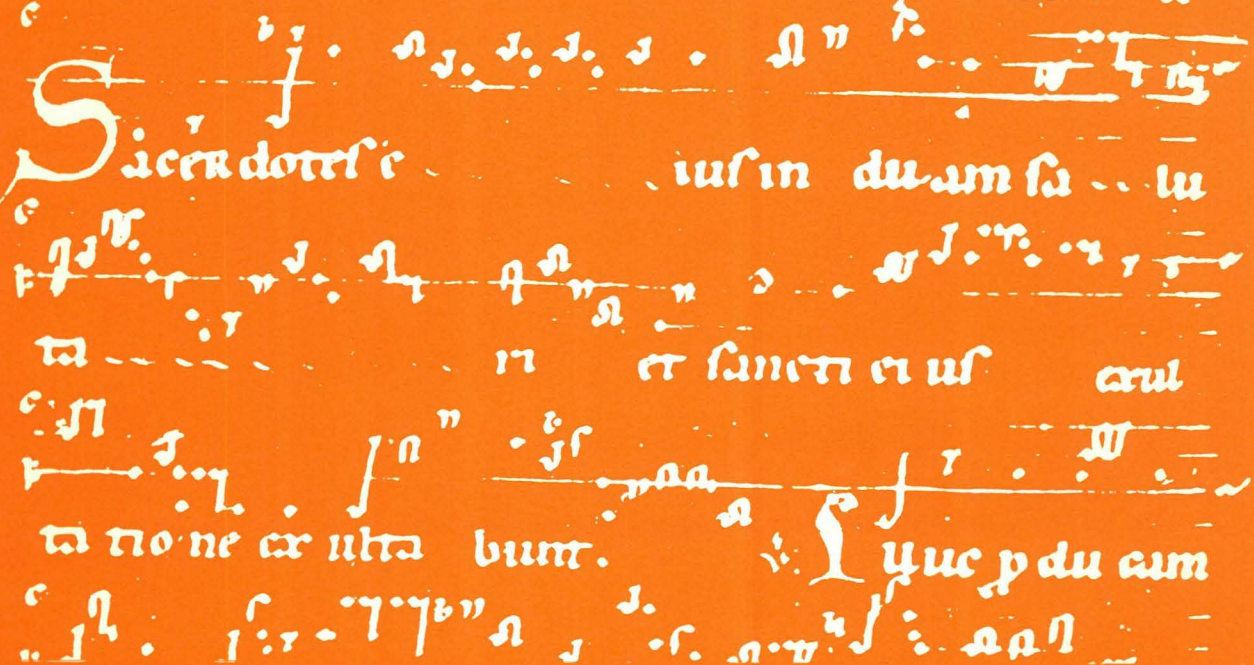 Sacerdotes e iuſ in duam ſa lu
ta ri et ſancti ei uſ exul
ta tio ne ex ulta bunt.
℣. Illuc ꝓdu cam